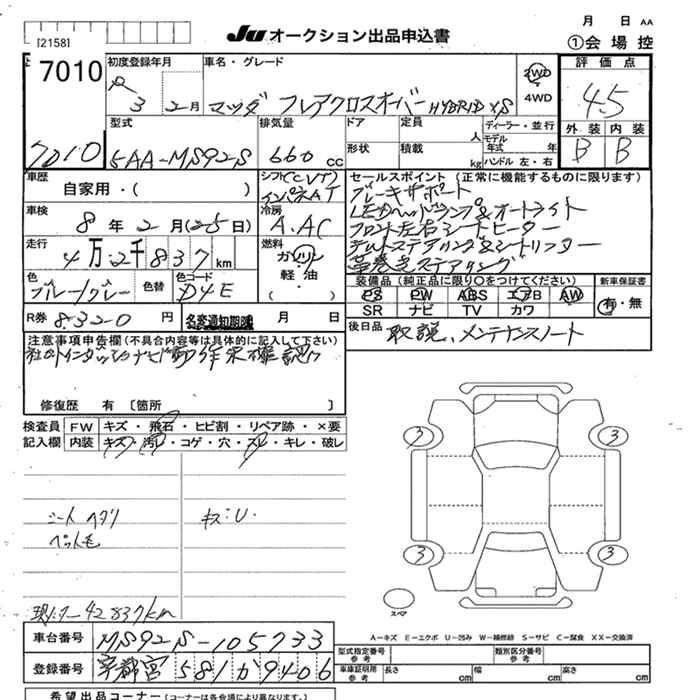 月 日 AA
[2158]
JU オークション出品申込書
①会場控
7010
初度登録年月
車名・グレード
2WD
4WD
評価点
R3 2月
マツダ フレアクロスオーバー HYBRID XS
4.5
7010
型式
排気量
ドア
定員
人
ディーラー・並行
モデル年式 年
外装 内装
5AA-MS92S
660 cc
形状
積載
kg
ハンドル 左・右
B B
車歴
自家用・( )
シフト(CVT)
インパネAT
セールスポイント (正常に機能するものに限ります)
ブレーキサポート
LEDヘッドランプ&オートライト
フロント左右シートヒーター
チルトステアリング&シートリフター
革巻きステアリング
車検
8年2月(25日)
冷房
A.AC
走行
4万2千837km
燃料
ガソリン
軽・油
( )
色
ブルー/グレー
色替
色コード
D4E
装備品(純正品に限り○をつけてください)
新車保証書
PS PW ABS エアB AW
SR ナビ TV カワ
有・無
R券 8320円
名変通知期限 月 日
後日品
取説、メンテナンスノート
注意事項申告欄(不具合内容等は具体的に記入して下さい)
ナビ動作未確認
修復歴 有〔箇所 〕
検査員記入欄
FW キズ・飛石・ヒビ割・リペア跡・×要
内装 キズ・汚レ・コゲ・穴・スレ・キレ・破レ
3 3
3 3
シートヘタリ
ペット毛
キズ:U.
42837km
スペア
A-キズ E-エクボ U-凹み W-補修跡 S-サビ C-腐食 XX-交換済
車台番号 MS92S-105733
型式指定番号 参考
類別区分番号 参考
登録番号 宇都宮 581か9406
車庫証明用 参考
長さ cm
幅 cm
高さ cm
希望出品コーナー(コーナーは各会場により異なります。)